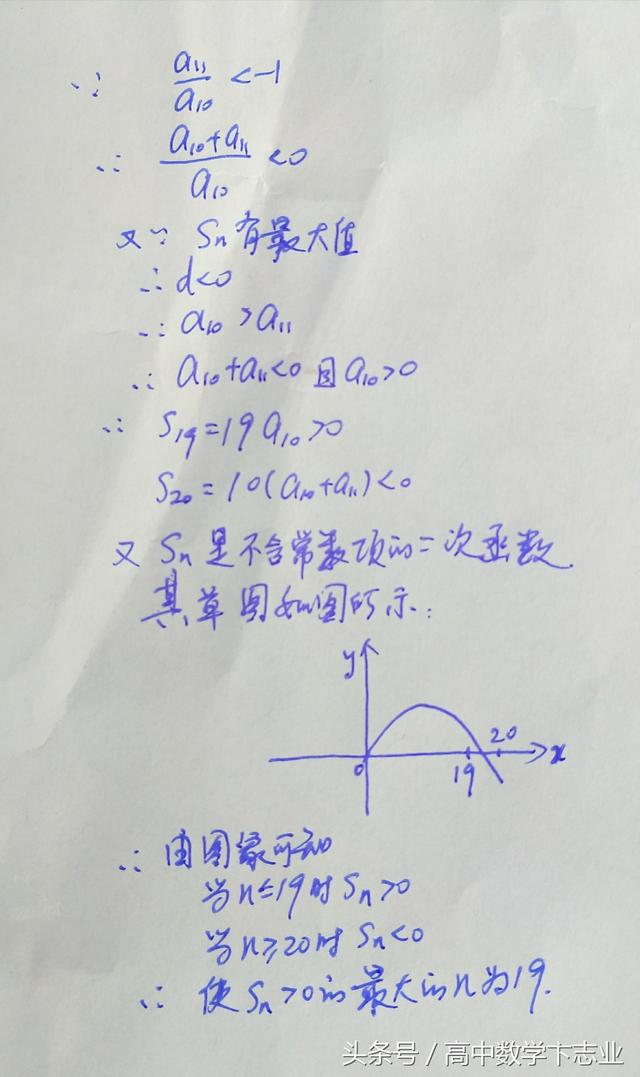 ∵ a₁₁/a₁₀ < -1
∴ (a₁₀+a₁₁)/a₁₀ < 0
又∵ Sn有最大值
∴ d<0
∴ a₁₀ > a₁₁
∴ a₁₀+a₁₁<0 且 a₁₀>0
∴ S₁₉=19a₁₀>0
S₂₀=10(a₁₀+a₁₁)<0
又 Sn是不含常数项的二次函数.
其草图如图所示:
y
0 19 20 x
∴ 由图象可知
当n≤19时 Sn>0
当n≥20时 Sn<0
∴ 使Sn>0的最大的n为19.
头条号 / 高中数学卞志业